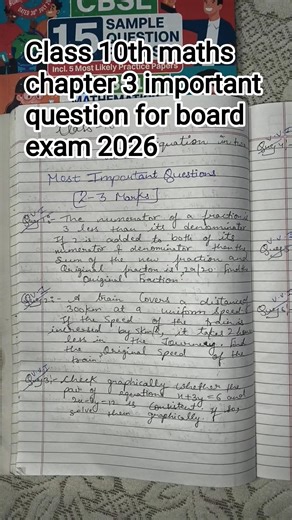 CBSE
15 SAMPLE
QUESTION
Incl. 5 Most Likely Practice Papers
MATHEMATICS
Class 10th maths
chapter 3 important
question for board
exam 2026
Class
equation in
Most Important Questions
[2-3 Marks]
The numerator of a fraction
3 less than its denominator
If 2 is added to both of its
numerator & denominator then the
Sum of the new fraction and
Original fraction is 29/20. Find the
Original fraction.
A train Covers a distance
300km at a uniform speed
If the Speed of the train is
increased by 5km/h, it takes 2
less in the Journey. Find
the Original Speed of the
train.
Check graphically whether the
pair of equations x+3y=6 and
2x-3y=12 is Consistent. If so,
solve them graphically.